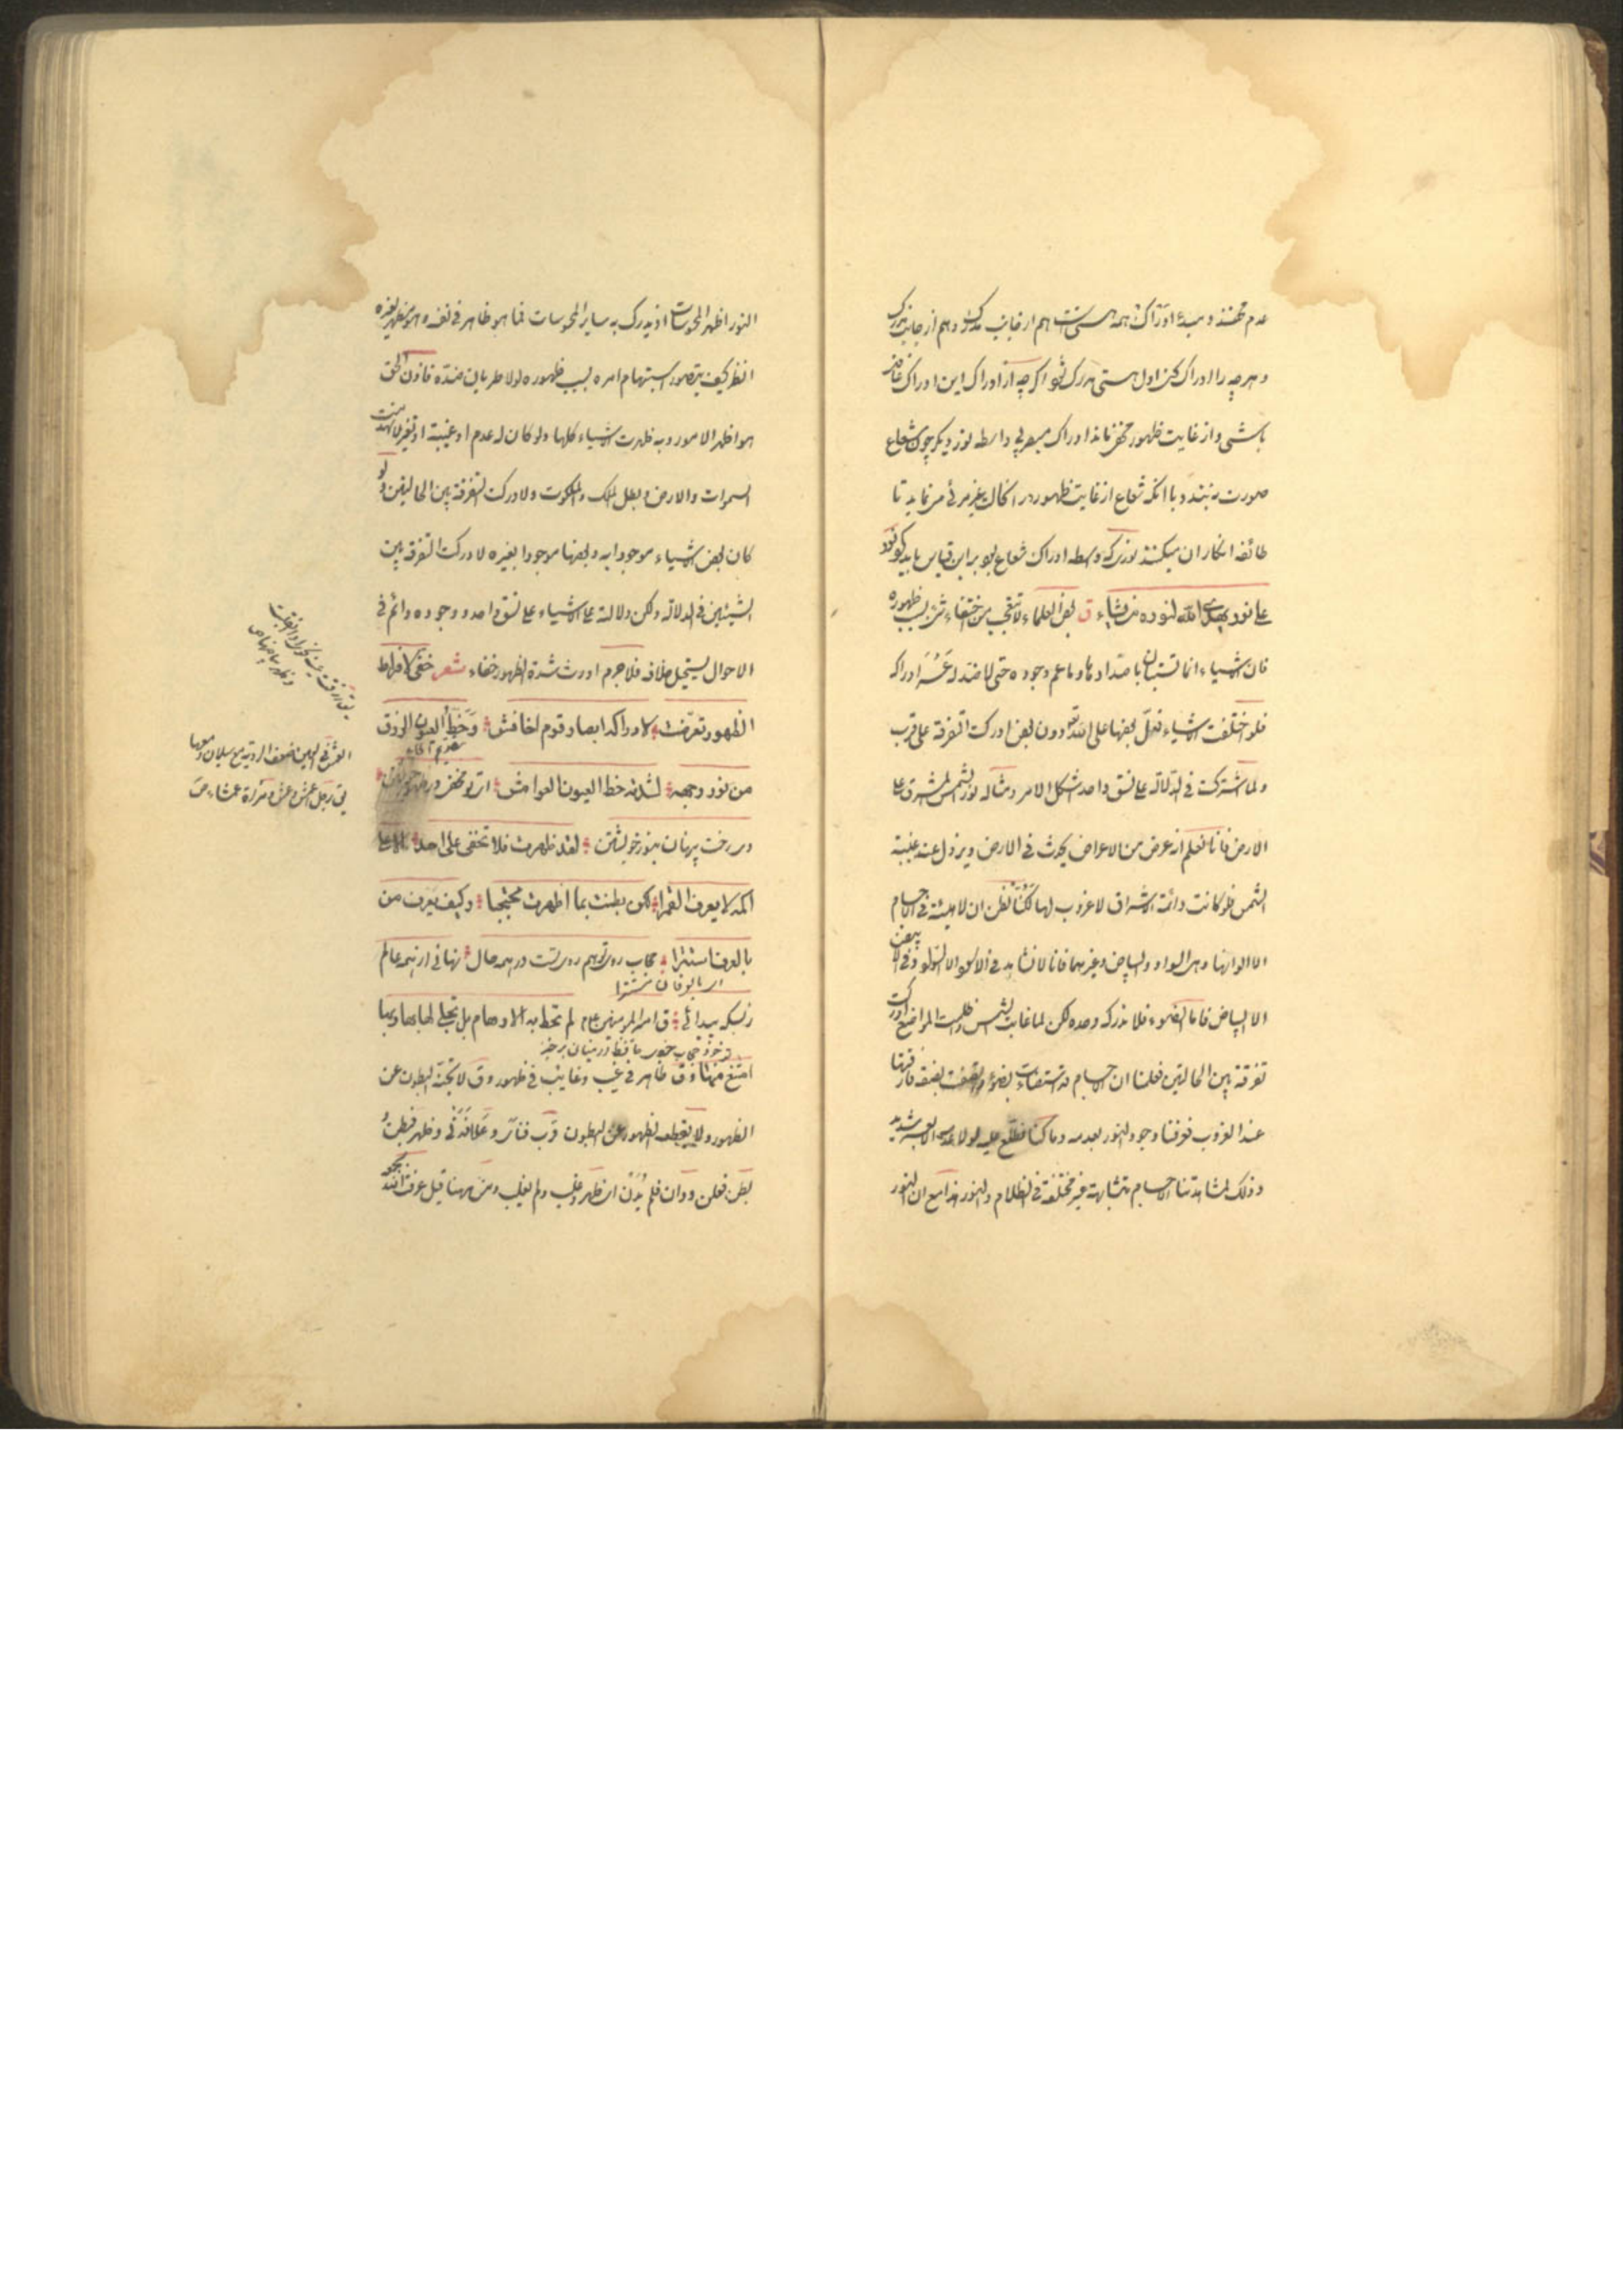 عدم محضند و مبدء ادراک همه هستی است هم از جانب مدرک و هم از جانب مدرک
و هر چه را ادراک کنی اول هستی مدرک شود اگر چه از ادراک این ادراک غافل
باشی و از غایت ظهور مخفی ماند ادراک مبصر بی واسطه نور دیگر چون شعاع
صورت نبندد با آنکه شعاع از غایت ظهور در آن حال غیر مرئی می نماید تا
طائفه انکار آن میکنند نوری که واسطه ادراک شعاع بود بر این قیاس باید کرد نور
علی نور یهدی الله لنوره من یشاء ق بعض العلماء لا تتعجب من اختفاء شیء بسبب ظهوره
فان الاشیاء انما تستبان باضدادها و ما عم وجوده حتی لا ضد له عسر ادراکه
فلو اختلفت الاشیاء فدل بعضها علی الله تعالی دون بعض ادرکت التفرقة علی قرب
و لما اشترکت فی الدلالة علی نسق واحد اشکل الامر و مثاله نور الشمس المشرق علی
الارض فانا نعلم انه عرض من الاعراض یحدث فی الارض و یزول عند غیبة
الشمس فلو کانت دائمة الاشراق لا غروب لها لکنا نظن ان لا هیئة فی الاجسام
الا الوانها و هی السواد و البیاض و غیرهما فانا لا نشاهد فی الاسود الا السواد و فی الابیض
الا البیاض فاما الضوء فلا ندرکه وحده لکن لما غابت الشمس و اظلمت المواضع ادرکت
تفرقة بین الحالتین فعلمنا ان الاجسام قد استضاءت بضوء و اتصفت بصفة فارقتها
عند الغروب فعرفنا وجود النور بعدمه و ما کنا نطلع علیه لولا عدمه الا بعسر شدید
و ذلک لمشاهدتنا الاجسام متشابهة غیر مختلفة فی الظلام و النور هذا مع ان النور
النور اظهر المحسوسات اذ یدرک به سایر المحسوسات فما هو ظاهر فی نفسه و هو مظهر لغیره
انظر کیف یتصور استبهام امره بسبب ظهوره لولا طریان ضده فاذن الحق
هو اظهر الامور و به ظهرت الاشیاء کلها و لو کان له عدم او غیبة او تغیر لانهدمت
السموات و الارض و بطل الملک و الملکوت و لادرکت التفرقة بین الحالتین و لو
کان بعض الاشیاء موجودا به و بعضها موجودا بغیره لادرکت التفرقة بین
الشیئین فی الدلالة و لکن دلالته علی الاشیاء علی نسق واحد و وجوده دائم فی
الاحوال یستحیل خلافه فلا جرم اورث شدة الظهور خفاء شعر خفی لافراط
الظهور تعرضت لادراکه ابصار قوم اخافش و حظ العیون الزرق
من نور وجهه لشدته حظ العیون العوامش ای تو مخفی در ظهور
در رخت پنهان بنور خویشتن لقد ظهرت فلا تخفی علی احد الا علی
اکمه لا یعرف القمرا لکن بطنت بما اظهرت محتجبا و کیف یعرف من
بالعرف استترا حجاب روی تو هم روی تست در همه حال نهانی از همه عالم
ز بسکه پیدائی ق امیر المؤمنین عم لم تحط به الاوهام بل تجلی لها بها و بها
امتنع منها و ق ظاهر فی غیب و غایب فی ظهور و ق لا یجنه البطون عن
الظهور و لا یقطعه الظهور عن البطون قرب فنای و علا فدنی و ظهر فبطن
بطن فعلن و دان فلم یدن ای ظهر و غلب و لم یغلب و من ههنا قیل عرفت الله
العمش فی العین ضعف الرؤیة مع سیلان دمعها
یق رجل اعمش و امرأة عمشاء ص